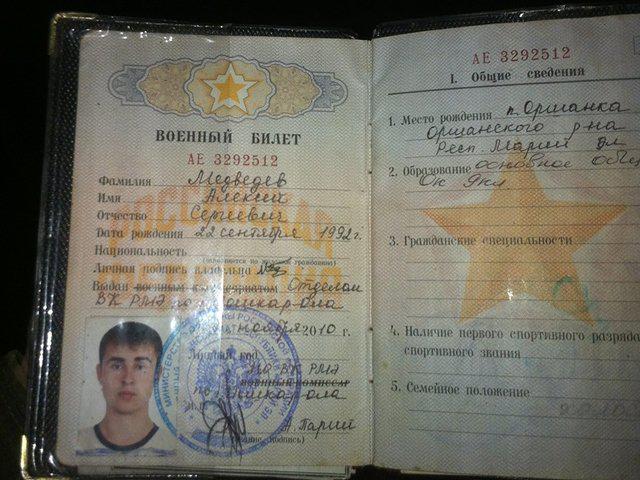 ВОЕННЫЙ БИЛЕТ
АЕ 3292512
Фамилия Медведев
Имя Алексей
Отчество Сергеевич
Дата рождения 22 сентября 1992 г.
Национальность
(заполняется по желанию гражданина)
Личная подпись владельца
Выдан военным комиссариатом Отделом
ВК РМЭ по г. Йошкар-Ола
ноября 2010 г.
Личный код
по ВК РМЭ
военный комиссар
Йошкар-Ола
М.П.
А. Парий
АЕ 3292512
I. Общие сведения
1. Место рождения п. Оршанка
Оршанского р-на
Респ. Марий Эл
2. Образование основное общ
9 кл
3. Гражданские специальности
4. Наличие первого спортивного разряда
спортивного звания
5. Семейное положение